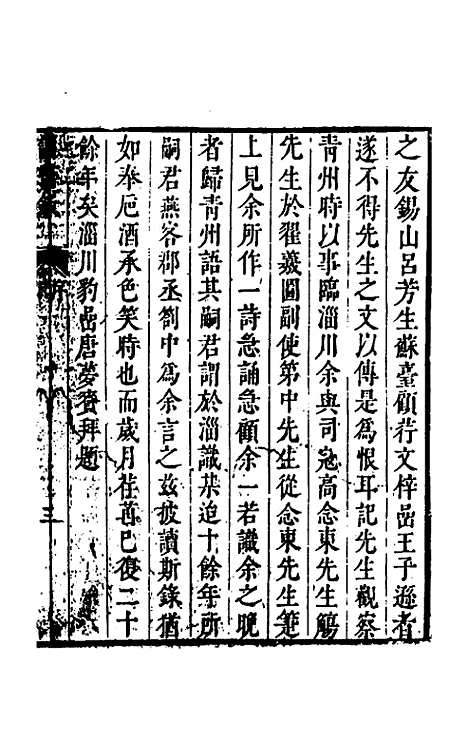 之友錫山呂芳生蘇臺顧荇文梓嵒王子遜者
遂不得先生之文以傳是爲恨耳記先生觀察
青州時以事臨淄川余與司寇高念東先生觴
先生於翟羲圖副使第中先生從念東先生箑
上見余所作一詩急誦急顧余一若識余之晚
者歸青州語其嗣君謂於淄識某迨十餘年所
嗣君燕客郡丞劄中爲余言之茲披讀斯錄猶
如奉卮酒承色笑時也而歲月荏苒已復二十
餘年矣淄川豹嵒唐夢賚拜題
三